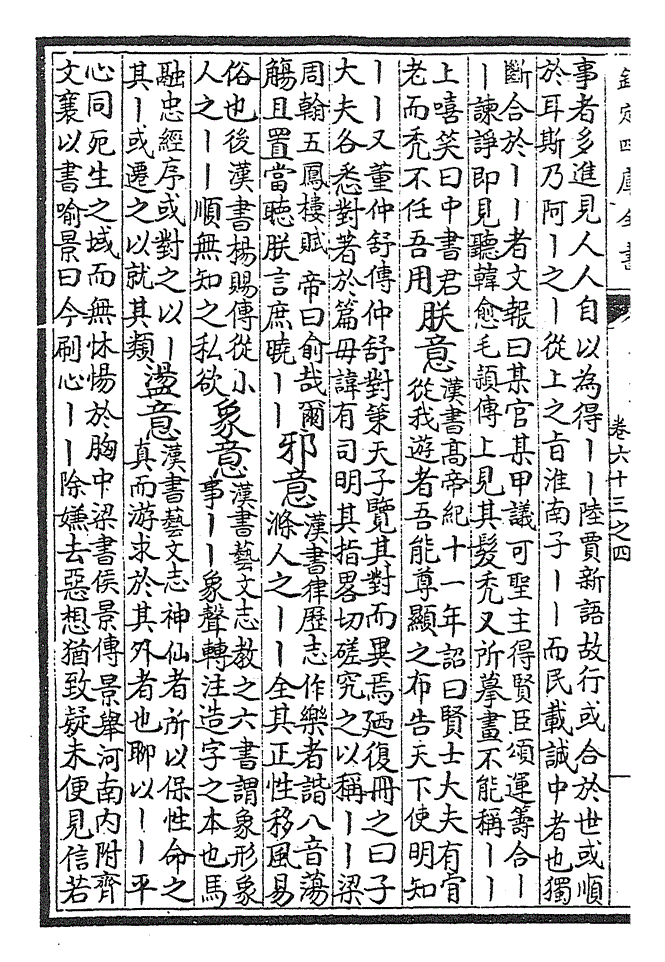 欽定四庫全書
卷六十三之四
事者多進見人人自以為得丨丨陸賈新語故行或合於世或順
於耳斯乃阿丨之丨從上之旨淮南子丨丨而民載誠中者也獨
斷合於丨丨者文報曰某官某甲議可聖主得賢臣頌運籌合丨
丨諫諍即見聽韓愈毛穎傳上見其髮禿又所摹畫不能稱丨丨
上嘻笑曰中書君
老而禿不任吾用
朕意
漢書高帝紀十一年詔曰賢士大夫有肯
從我遊者吾能尊顯之布告天下使明知
丨丨又董仲舒傳仲舒對策天子覽其對而異焉廼復冊之曰子
大夫各悉對著於篇毋諱有司明其指畧切磋究之以稱丨丨梁
周翰五鳳樓賦 帝曰俞哉爾
觴且置當聽朕言庶曉丨丨
邪意
漢書律歷志作樂者諧八音蕩
滌人之丨丨全其正性移風易
俗也後漢書楊賜傳從小
人之丨丨順無知之私欲
象意
漢書藝文志教之六書謂象形象
事丨丨象聲轉注造字之本也馬
融忠經序或對之以丨
其丨或遷之以就其類
盪意
漢書藝文志神仙者所以保性命之
真而游求於其外者也聊以丨丨平
心同死生之域而無怵惕於胸中梁書侯景傳景舉河南内附齊
文襄以書喻景曰今刷心丨丨除嫌去惡想猶致疑未便見信若